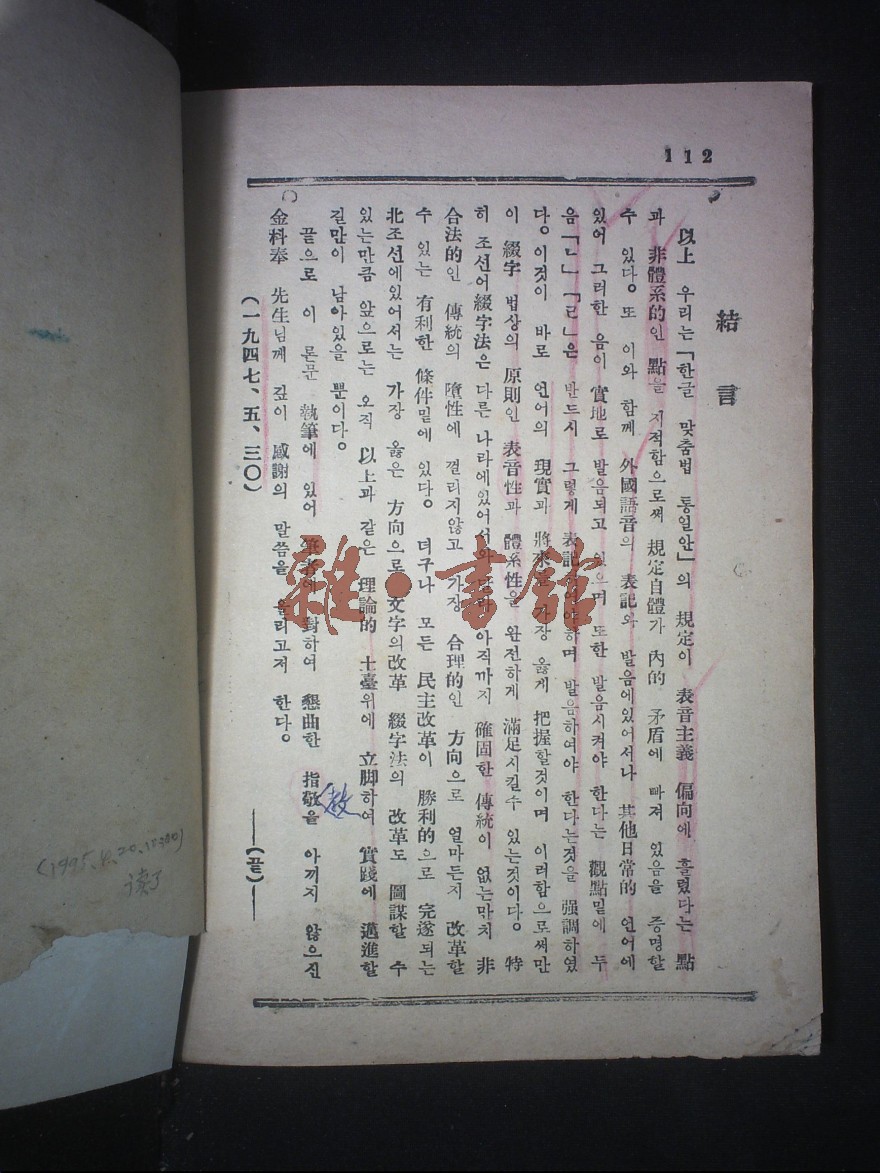 112
結言
以上 우리는「한글 맞춤법 통일안」의 規定이 表音主義 偏向에 흘렀다는 點
과 非體系的인 點을 지적함으로써 規定自體가 內的 矛盾에 빠져 있음을 증명할
수 있다。또 이와 함께 外國語音의 表記와 발음에있어서나 其他日常的 언어에
있어 그러한 음이 實地로 발음되고 있으며 또한 발음시켜야 한다는 觀點밑에 두
음「ㄴ」「ㄹ」은 반드시 그렇게 表記 하며 발음하여야 한다는것을 强調하였
다。이것이 바로 언어의 現實과 將來를 가장 옳게 把握할것이며 이러함으로써만
이 綴字 법상의 原則인 表音性과 體系性을 완전하게 滿足시킬수 있는것이다。特
히 조선어綴字法은 다른 나라에있어서와 달리 아직까지 確固한 傳統이 없는만치 非
合法的인 傳統의 墮性에 껄리지않고 가장 合理的인 方向으로 얼마든지 改革할
수 있는 有利한 條件밑에 있다。더구나 모든 民主改革이 勝利的으로 完遂되는
北조선에있어서는 가장 옳은 方向으로 文字의 改革 綴字法의 改革도 圖謀할 수
있는만큼 앞으로는 오직 以上과 같은 理論的 土臺위에 立脚하여 實踐에 邁進할
길만이 남아있을 뿐이다。
끝으로 이 론문 執筆에 있어 筆者에 對하여 懇曲한 指敬을 아끼지 않으신
教
金科奉 先生님께 깊이 感謝의 말씀을 올리고저 한다。
(一九四七、五、三〇)
——(끝)——
读了
雜·書館